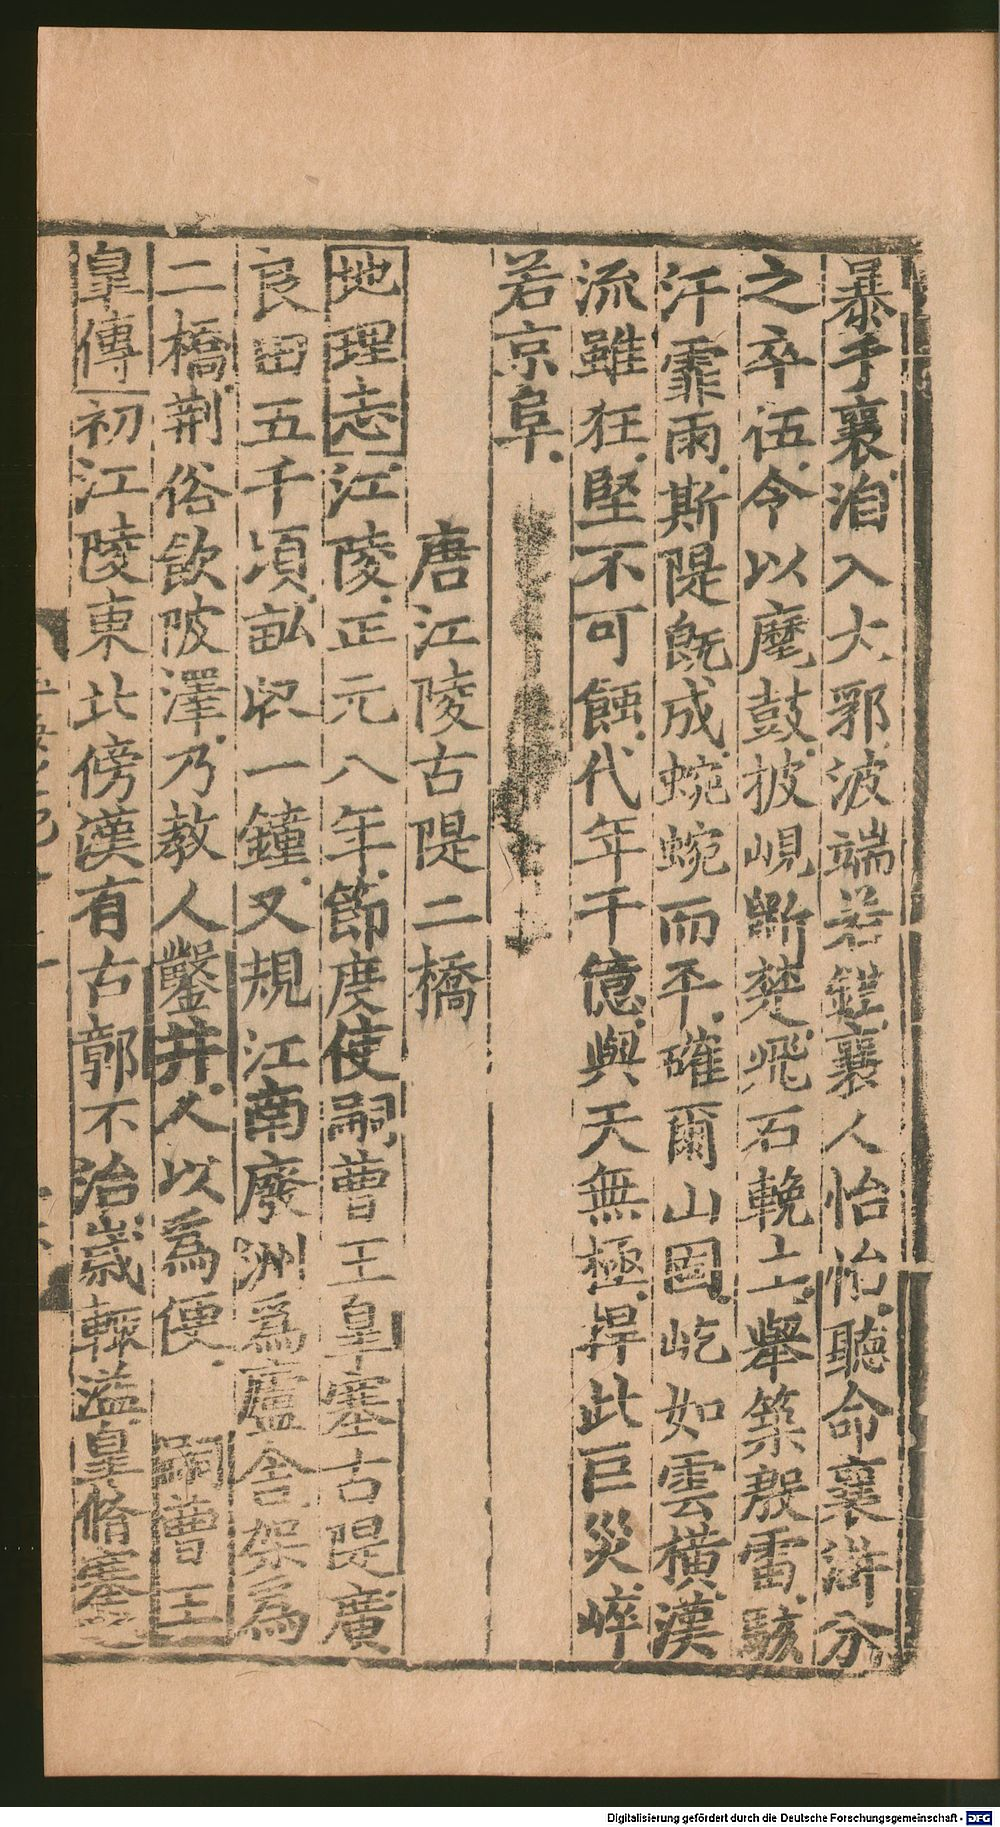 暴乎襄洎入大郛波端若鏗襄人怡怡聽命襄滸分
之卒伍令以麾鼓披峴斲楚飛石輓土舉築殷雷駭
汗霏雨斯隄旣成蜿蜿而平確爾山固屹如雲橫漢
流雖狂堅不可蝕代年千億與天無極捍此巨災崪
若京阜
唐江陵古隄二橋
地理志江陵正元八年節度使嗣曹王皐塞古隄廣
良田五千頃畝收一鐘又規江南廢洲爲廬舍架爲
二橋荆俗飲陂澤乃教人鑿井人以爲便 嗣曹王
皐傳初江陵東北傍漢有古郭不治歲輒溢皐脩塞之
Digitalisierung gefördert durch die Deutsche Forschungsgemeinschaft - DFG